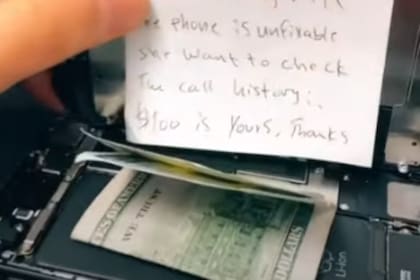 phone is unfixable
she want to check
The call history:.
$100 is Yours, Thanks
ES OF AMER
WE TRUST
DOLLARS
Li-ion